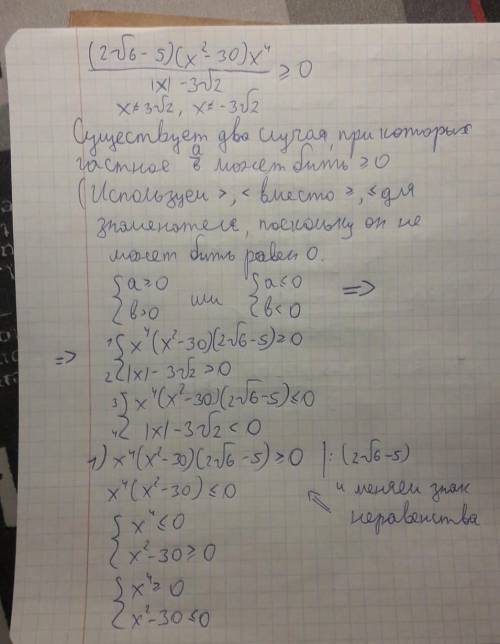 (2√6-5)(x²-30)x⁴
|x| -3√2 ≥ 0
x≠3√2, x≠-3√2
Существует два случая, при которых
частное a/b может быть ≥0
(Используем >,< вместо ≥,≤ для
знаменателя, поскольку он не
может быть равен 0.
{a≥0 или {a≤0 =>
{b>0 {b<0
=> 1 {x⁴(x²-30)(2√6-5)≥0
2 {|x|-3√2>0
3 {x⁴(x²-30)(2√6-5)≤0
4 {|x|-3√2<0
1) x⁴(x²-30)(2√6-5)≥0 |:(2√6-5)
x⁴(x²-30)≤0 и меняем знак
неравенства
{x⁴≤0
{x²-30≥0
{x⁴≥0
{x²-30≤0